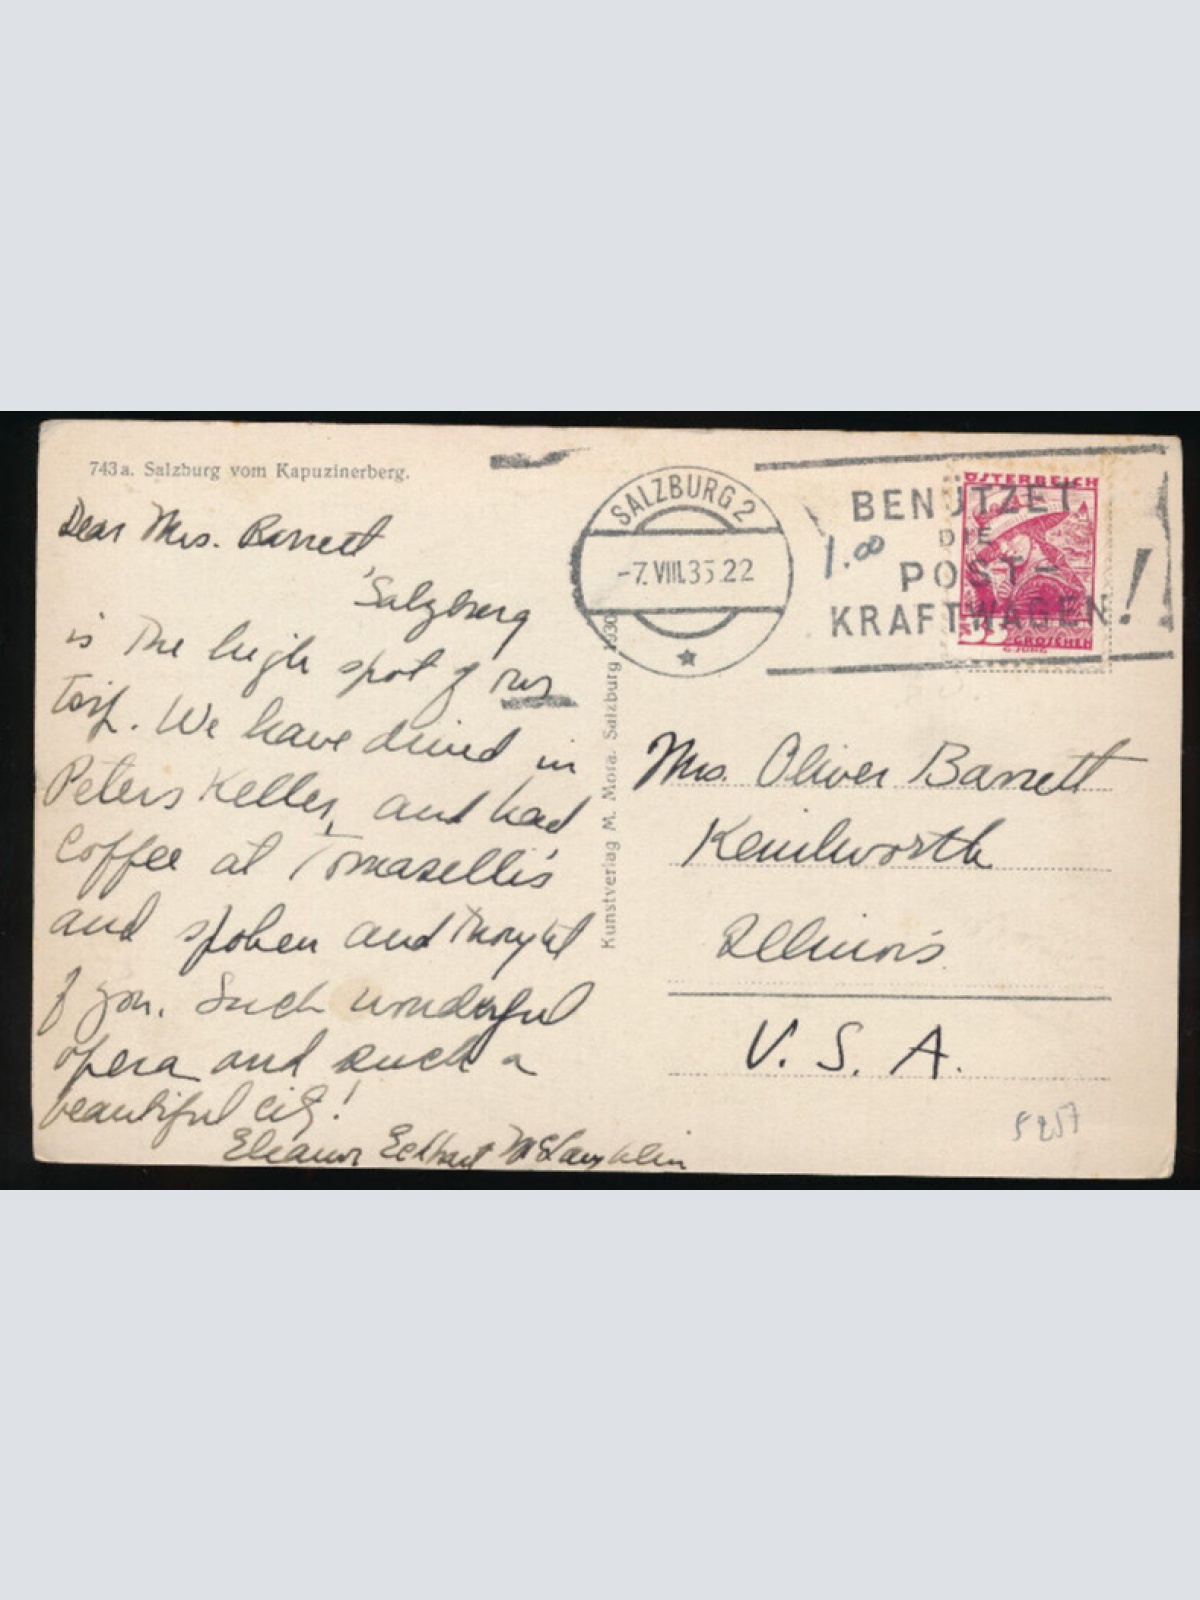 743a. Salzburg vom Kapuzinerberg.
Dear Mrs. Barrett
Salzburg
is the high spot of our
trip. We have dined in
Peters Keller, and had
Coffee at Tomaselli's
and spoken and thought
of you. Such wonderful
opera and such a
beautiful city!
Eleanor Eckhart McLaughlin
Kunstverlag M. Mora. Salzburg 1930
SALZBURG 2
-7.VIII.35.22
BENÜTZET
DIE
POST-
KRAFTWAGEN!
1.00
ÖSTERREICH
GROSCHEN
Mrs. Oliver Barrett
Kenilworth
Illinois
U. S. A.
5257